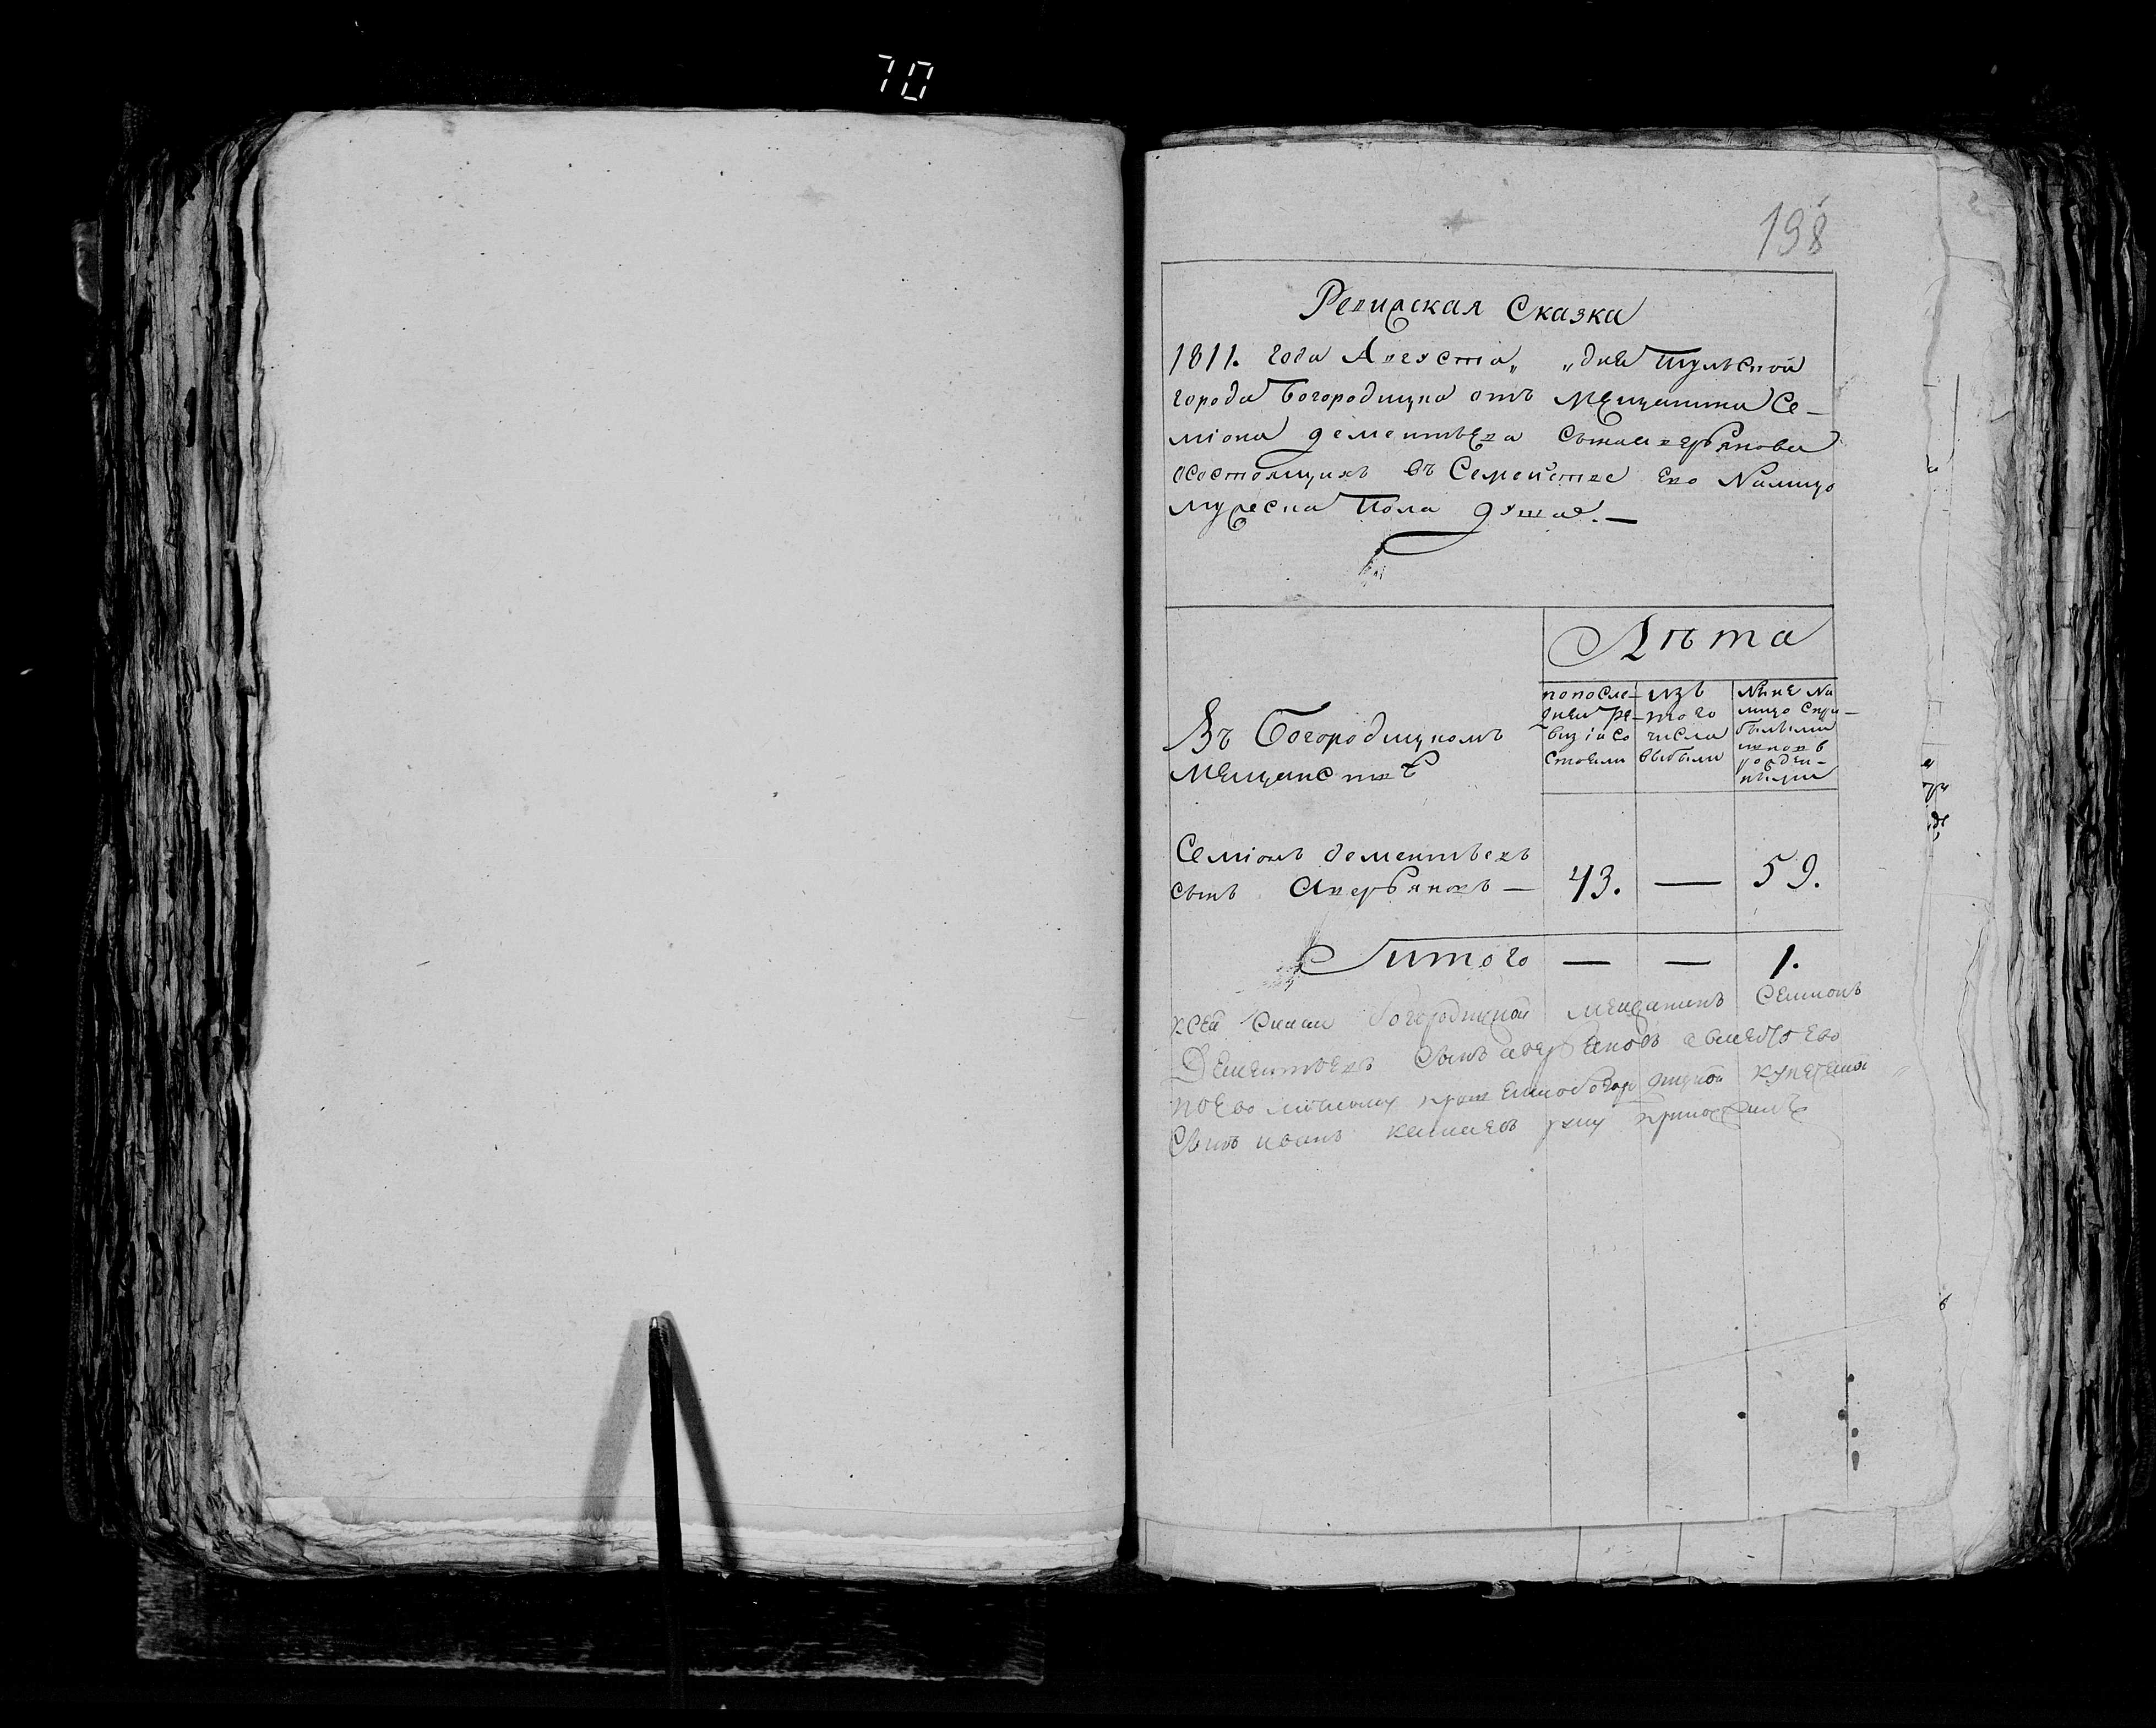 70
198
Ревиская Сказка
1811. года Августа „ „ дня тульской
города Богородицка отъ Мещанина Се-
міона дементьева сына аверьянова
осостоящихъ въ Семействе Ево Налицо
мужеска пола душа. —
Лѣта
Въ Богородицкомъ
мещанствѣ
попосле-
дней ре-
визіи со
стояли
изъ
того
числа
выбыли
Ныне На
лицо спри-
былыми
и вновь
рожден-
ными
Семіонъ дементьевъ
сынъ Аверьяновъ — 43. — 59.
Итого — — 1.
ксей Скаски богородицкой мещанинъ Семионъ
Дементьевъ Сынъ аверьяновъ авместо Ево
поево личному прошению богородицкой купецкой
Сынъ иванъ руку приложилъ